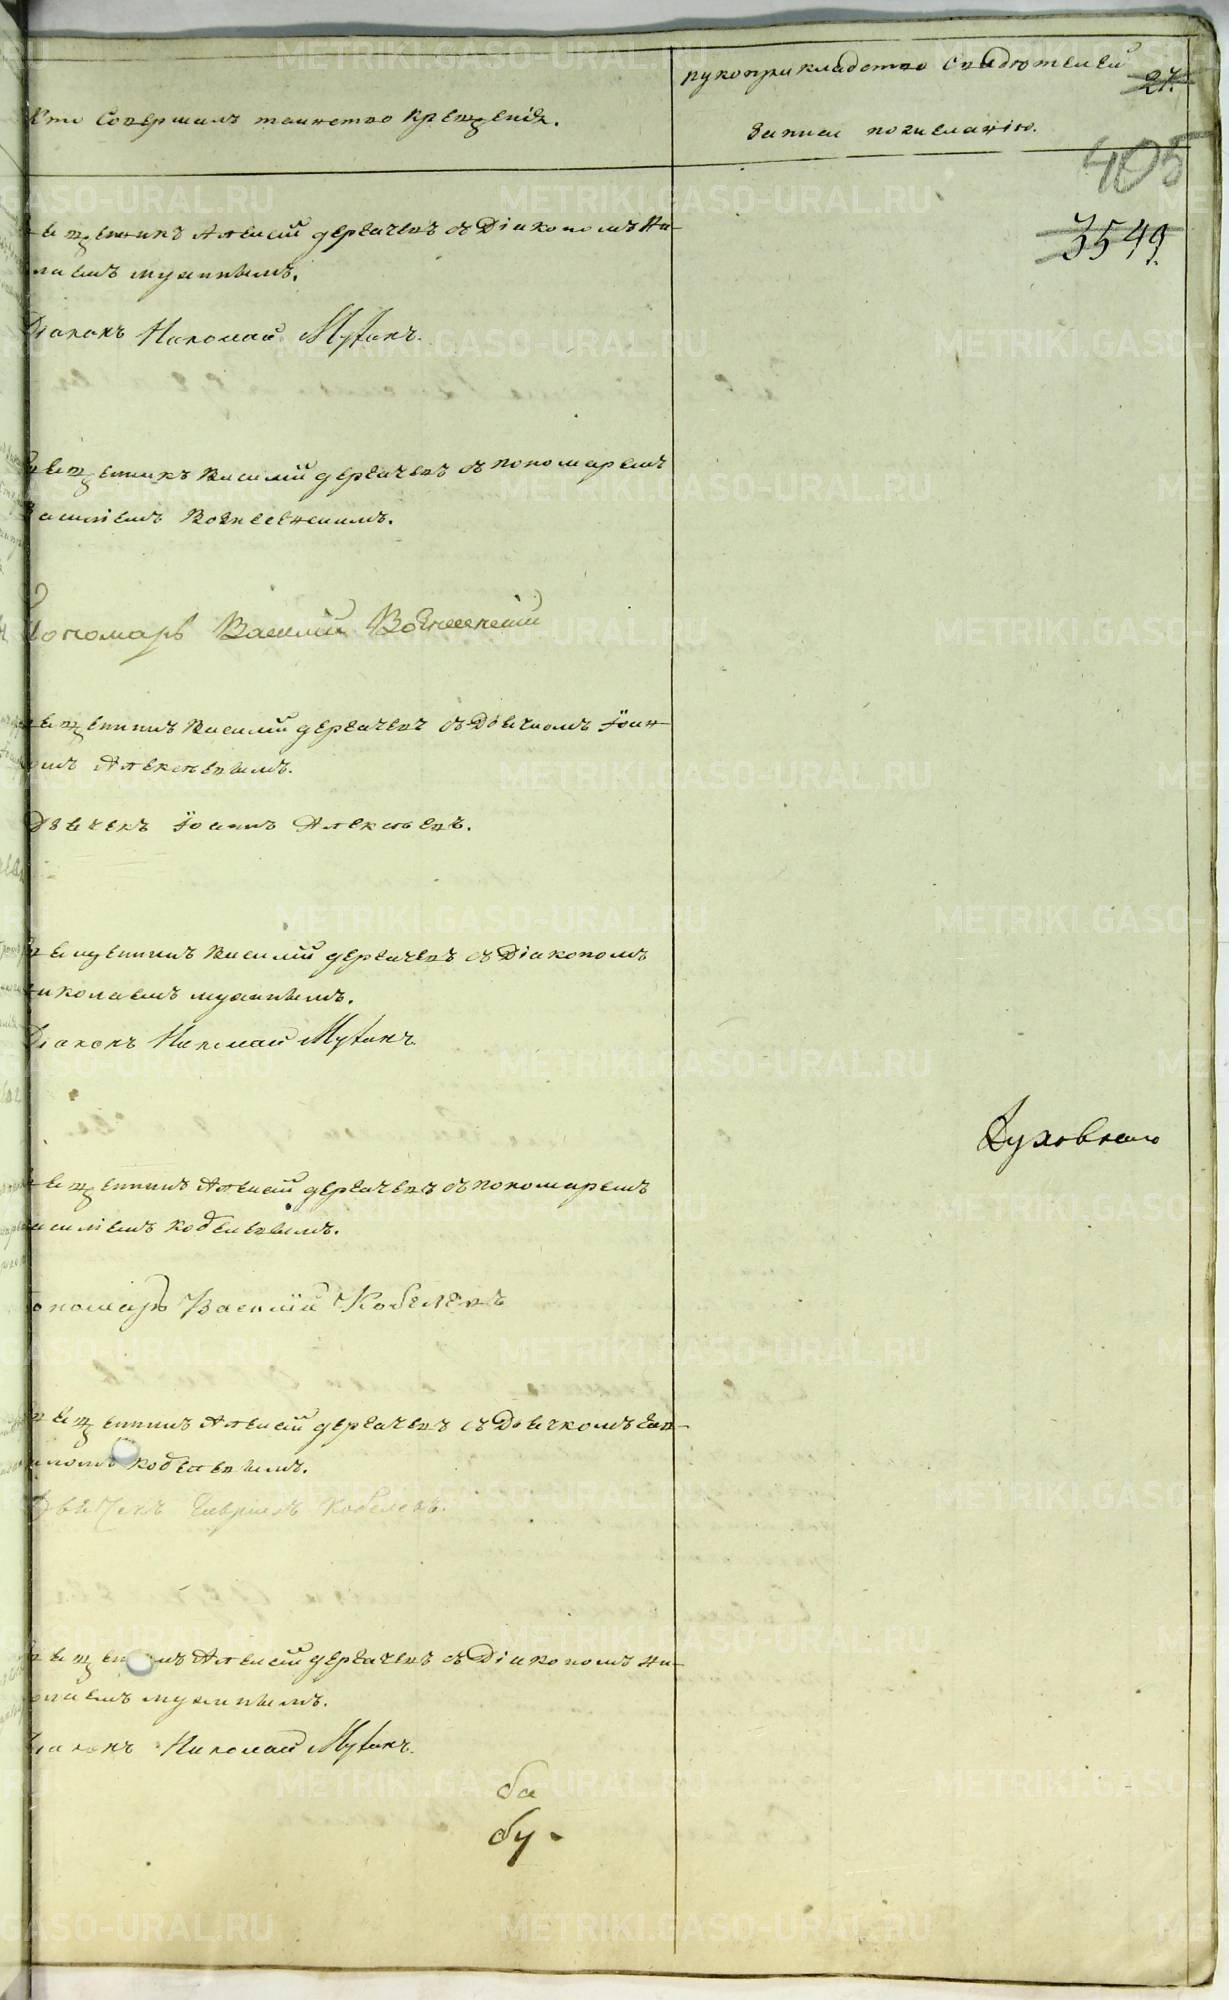 Кто совершалъ таинство крещенія.
рукоприкладство свидѣтелей
записи по желанію.
27.
405
3549.
Священникъ Алексѣй Дергачевъ съ Діакономъ Ни-
колаемъ Мухинымъ.
Діаконъ Николай Мухинъ.
Священникъ Василій Дергачевъ съ пономаремъ
Василіемъ Вознесенскимъ.
Пономарь Василій Вознесенскій
Священникъ Василій Дергачевъ съ Дьячкомъ Іоан-
омъ Алексѣевымъ.
Дьячекъ Іоаннъ Алексѣевъ.
Священникъ Василій Дергачевъ съ Діакономъ
Николаемъ Мухинымъ.
Діаконъ Николай Мухинъ.
Духовнаго
Священникъ Алексѣй Дергачевъ съ пономаремъ
Василіемъ Кобелевымъ.
Пономарь Василій Кобелевъ
Священникъ Алексѣй Дергачевъ съ Дьячкомъ Гав-
ріиломъ Кобелевымъ.
Дьячекъ Гавріилъ Кобелевъ.
Священникъ Алексѣй Дергачевъ съ Діакономъ Ни-
колаемъ Мухинымъ.
Діаконъ Николай Мухинъ.
ба
бу
METRIKI.GASO-URAL.RU